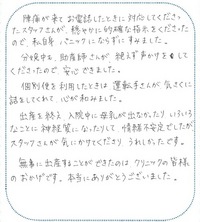 陣痛が来てお電話したときに対応してくださっ
たスタッフさんが、穏やかに的確な指示をくださった
ので、私自身パニックにならずにすみました。
分娩中も、助産師さんが絶えず声かけをして
くださったので安心できました。
個別便を利用したときは運転手さんが、気さくに
話をしてくれて心が和みました。
出産を終え入院中に母乳が出なかったりいろいろ
なことに神経質になったりして情緒不安定でしたが
スタッフさんが気にかけてくださりうれしかったです。
無事に出産することができたのはクリニックの皆様
のおかげです。本当にありがとうございました。